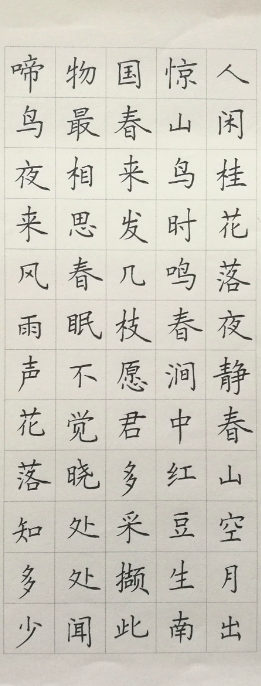 人闲桂花落夜静春山空月出
惊山鸟时鸣春涧中红豆生南
国春来发几枝愿君多采撷此
物最相思春眠不觉晓处处闻
啼鸟夜来风雨声花落知多少